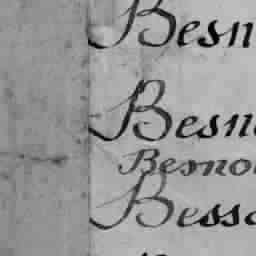 Besn
Besn
Besno
Bess